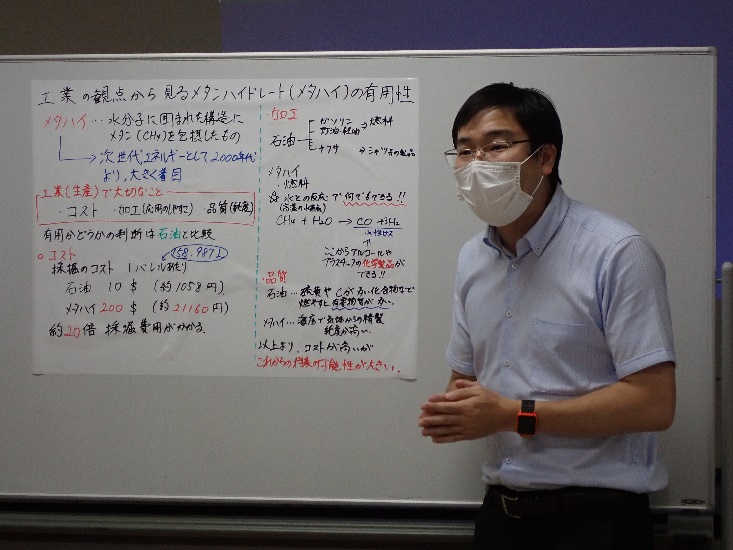 工業の観点から見るメタンハイドレート(メタハイ)の有用性
メタハイ…水分子に囲まれた構造に
メタン(CH4)を包摂したもの
→次世代エネルギーとして2000年代
より、大きく着目
工業(生産)で大切なこと
・コスト ・加工(応用のしやすさ) ・品質(純度)
有用かどうかの判断は石油と比較
○コスト
158.987L
採掘のコスト 1バレルあたり
石油 10$ (約1058円)
メタハイ 200$ (約21160円)
約20倍 採掘費用がかかる。
・加工
石油
ガソリン
灯油・軽油
→燃料
ナフサ
→シャツ等の製品
メタハイ
・燃料
水との反応で何でもできる!!
(高温の水蒸気)
CH4 + H2O → CO + 3H2
水性ガス
ここからアルコールや
プラスチックの化学製品が
できる!!
・品質
石油…硫黄やCが多い化合物なので
燃やすと有害物質が
メタハイ…海底で気体からの精製
純度が高い。
以上より、コストが高いが
これからの作業の可能性が大きい。